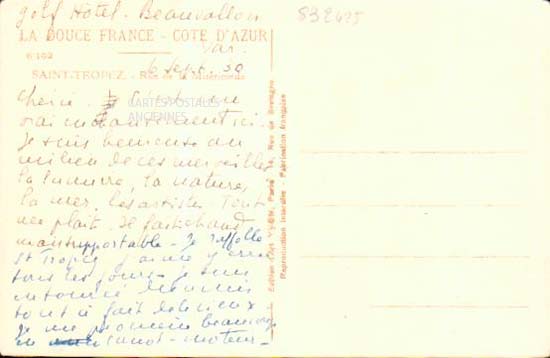 golf Hôtel. Beauvallon
LA DOUCE FRANCE - COTE D'AZUR
Var.
6 192
6 Sept. 30
SAINT-TROPEZ - Rue de la Miséricorde
chérie.
CARTES POSTALES
ANCIENNES
vrai enchantement ici.
Je suis heureuse au
milieu de ces merveilles
la lumière, la nature,
la mer, les artistes tout
me plait. Il fait chaud
mais supportable - Je raffole
St Tropez j'aime y errer
tous les jours - je suis
entourée
tout à fait délicieux
Je me promène beaucoup
en canot-moteur -
832425
Edition d'Art Paris Rue de Bretagne
Reproduction interdite - Fabrication française